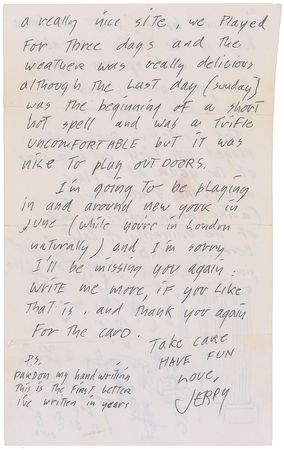 a really nice site, we played
for three days and the
weather was really delicious
although the last day (sunday)
was the beginning of a short
hot spell and was a trifle
UNCOMFORTABLE but it was
nice to play OUTDOORS.
I'm going to be playing
in and around new york in
June (while you're in London
naturally) and I'm sorry
I'll be missing you again:
write me more, if you like
that is. and thank you again
for the card.
Take care
HAVE FUN
Love,
JERRY
P.S.
pardon my handwritin
this is the first letter
i've written in years